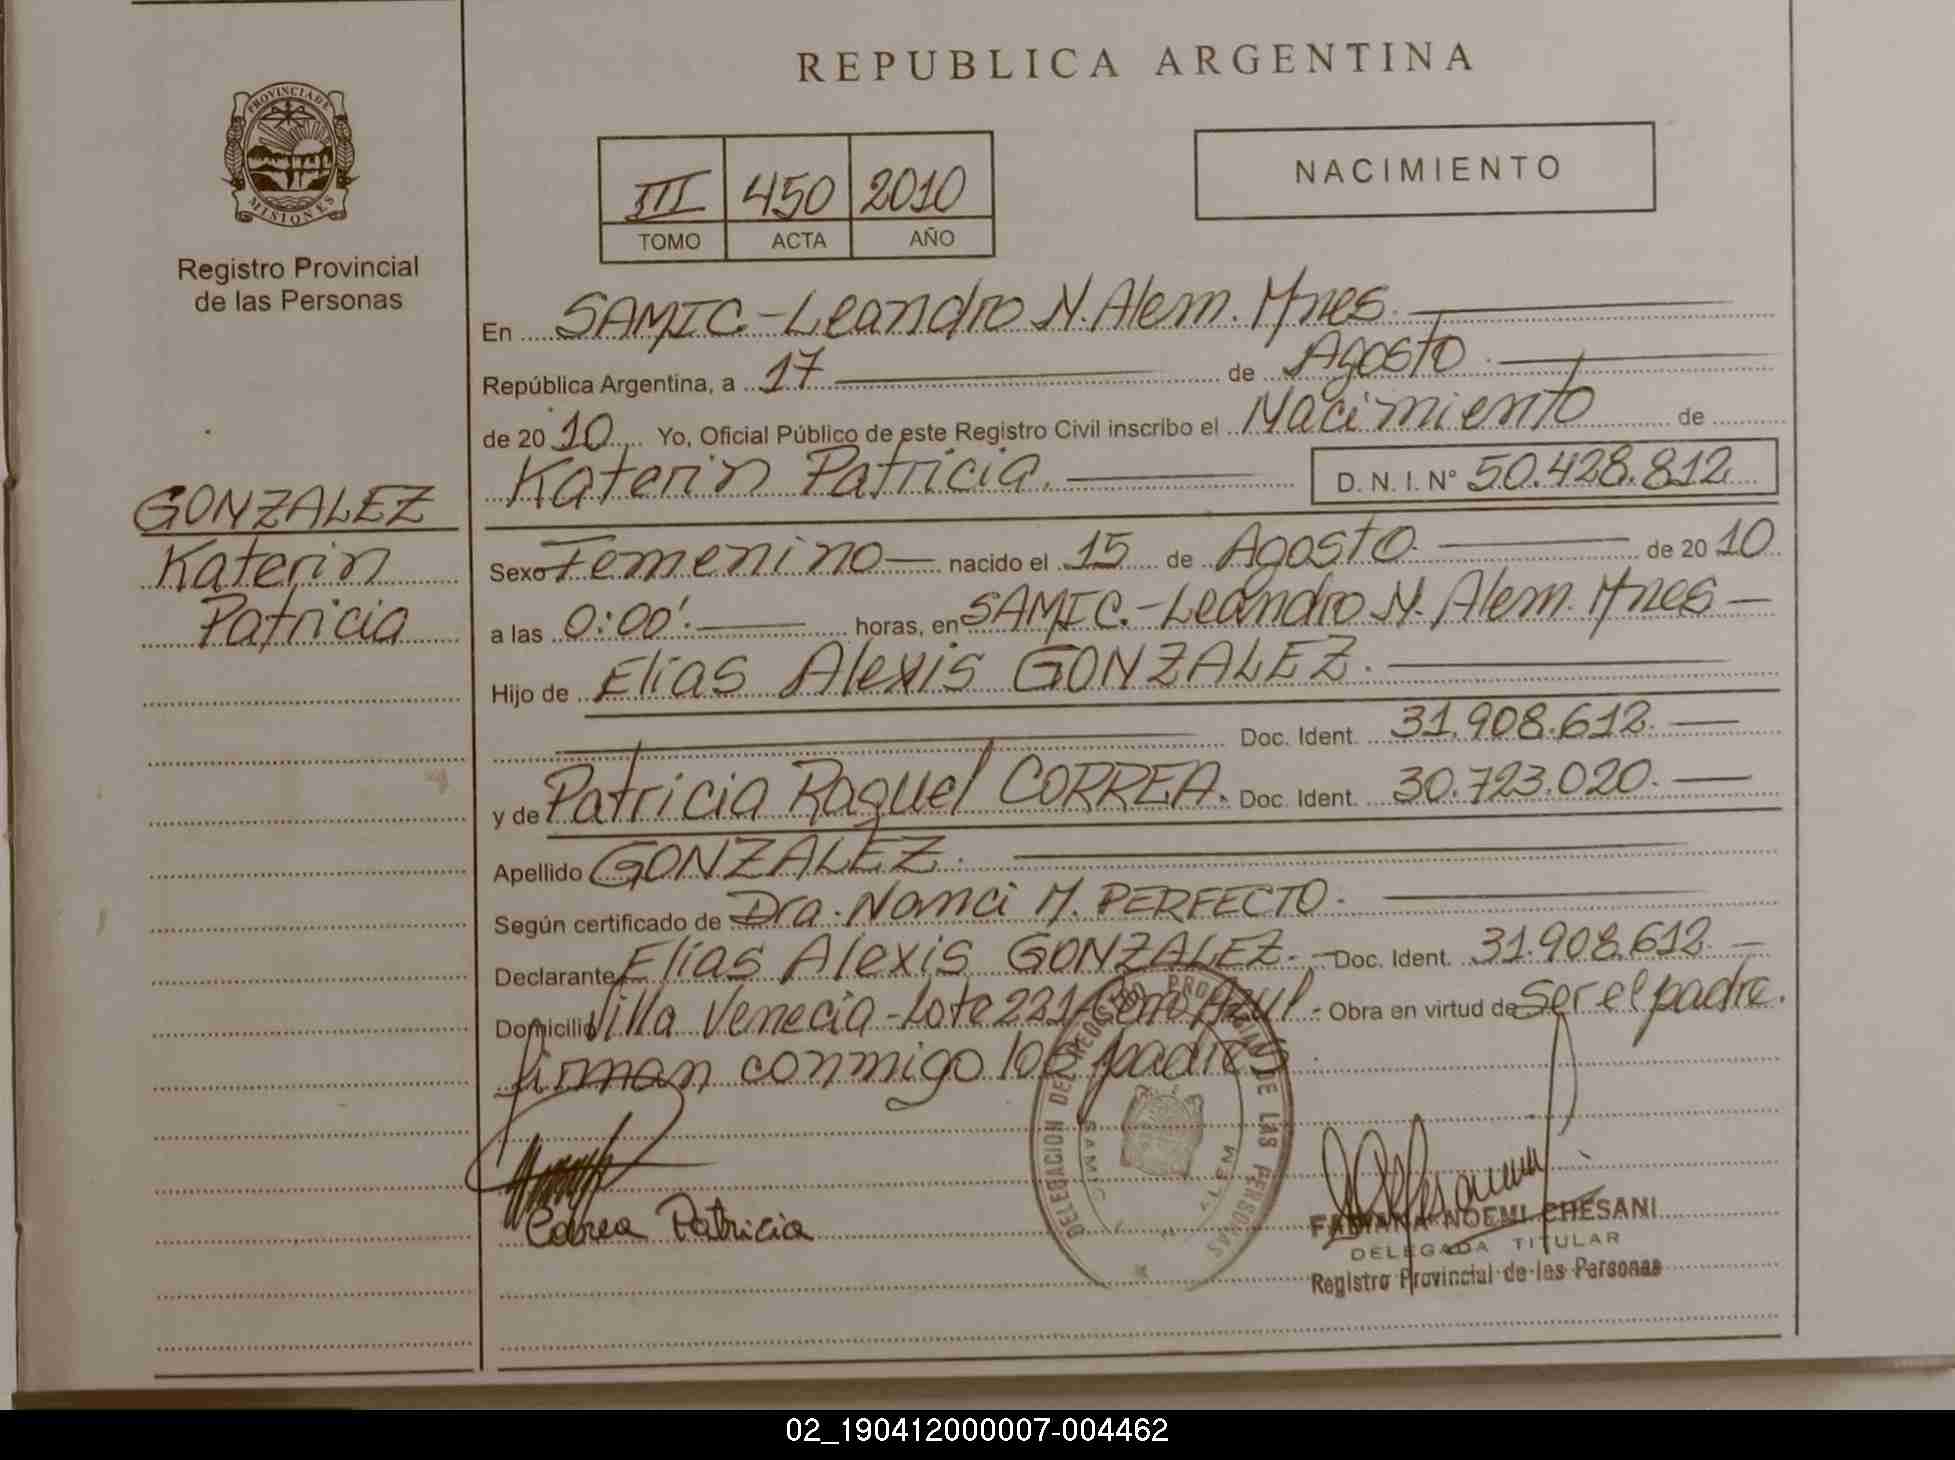 REPUBLICA ARGENTINA
PROVINCIA DE
MISIONES
Registro Provincial
de las Personas
III 450 2010
TOMO ACTA AÑO
NACIMIENTO
En SAMIC.-Leandro N. Alem. Mnes.
República Argentina, a 17 de Agosto
de 20 10 Yo, Oficial Público de este Registro Civil inscribo el Nacimiento de
Katerin Patricia. D. N. I. N° 50.428.812
GONZALEZ
Katerin
Patricia
Sexo Femenino nacido el 15 de Agosto de 20 10
a las 0:00'. horas, en SAMIC.-Leandro N. Alem. Mnes
Hijo de Elías Alexis GONZALEZ.
Doc. Ident. 31.908.612.
y de Patricia Raquel CORREA. Doc. Ident. 30.723.020.
Apellido GONZALEZ.
Según certificado de Dra. Nanci M. PERFECTO.
Declarante Elías Alexis GONZALEZ. Doc. Ident. 31.908.612
Domicilio Villa Venecia-Lote 221 Cerro Azul. Obra en virtud de Ser el padre.
firman conmigo los padres
DELEGACION DEL REGISTRO PROVINCIAL DE LAS PERSONAS
SAMIC
ALEM
Correa Patricia
FABIANA NOEMI CHESANI
DELEGADA TITULAR
Registro Provincial de las Personas
02_190412000007-004462